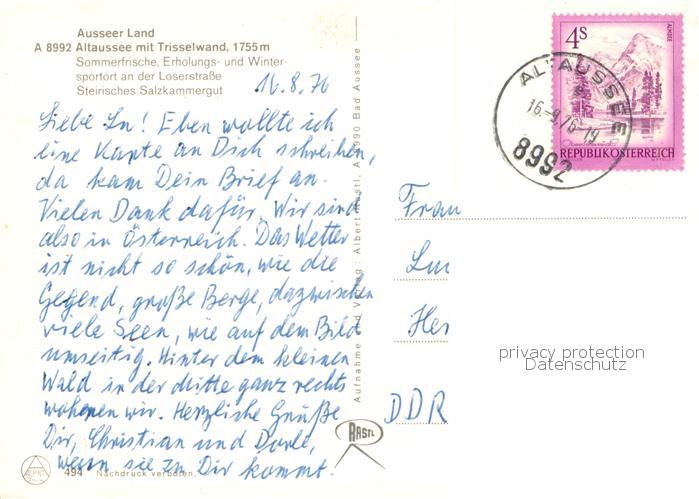 Ausseer Land
A 8992 Altaussee mit Trisselwand, 1755 m
Sommerfrische, Erholungs- und Winter-
sportort an der Loserstraße
Steirisches Salzkammergut
16.8.76
Liebe Lu! Eben wollte ich
eine Karte an Dich schreiben,
da kam Dein Brief an.
Vielen Dank dafür. Wir sind
also in Österreich. Das Wetter
ist nicht so schön, wie die
Gegend, große Berge, dazwischen
viele Seen, wie auf dem Bild
umseitig. Hinter dem kleinen
Wald in der Mitte ganz rechts
wohnen wir. Herzliche Grüße
Dir, Christian und Dorle,
wenn sie zu Dir kommt.
494 Nachdruck verboten.
Aufnahme und Verlag: Albert Rastl, A 8990 Bad Aussee
RASTL
4S
ALMSEE
REPUBLIK ÖSTERREICH
ALTAUSSEE
16.-9.76-19
8992
Frau
Lu
Her
DDR
privacy protection
Datenschutz